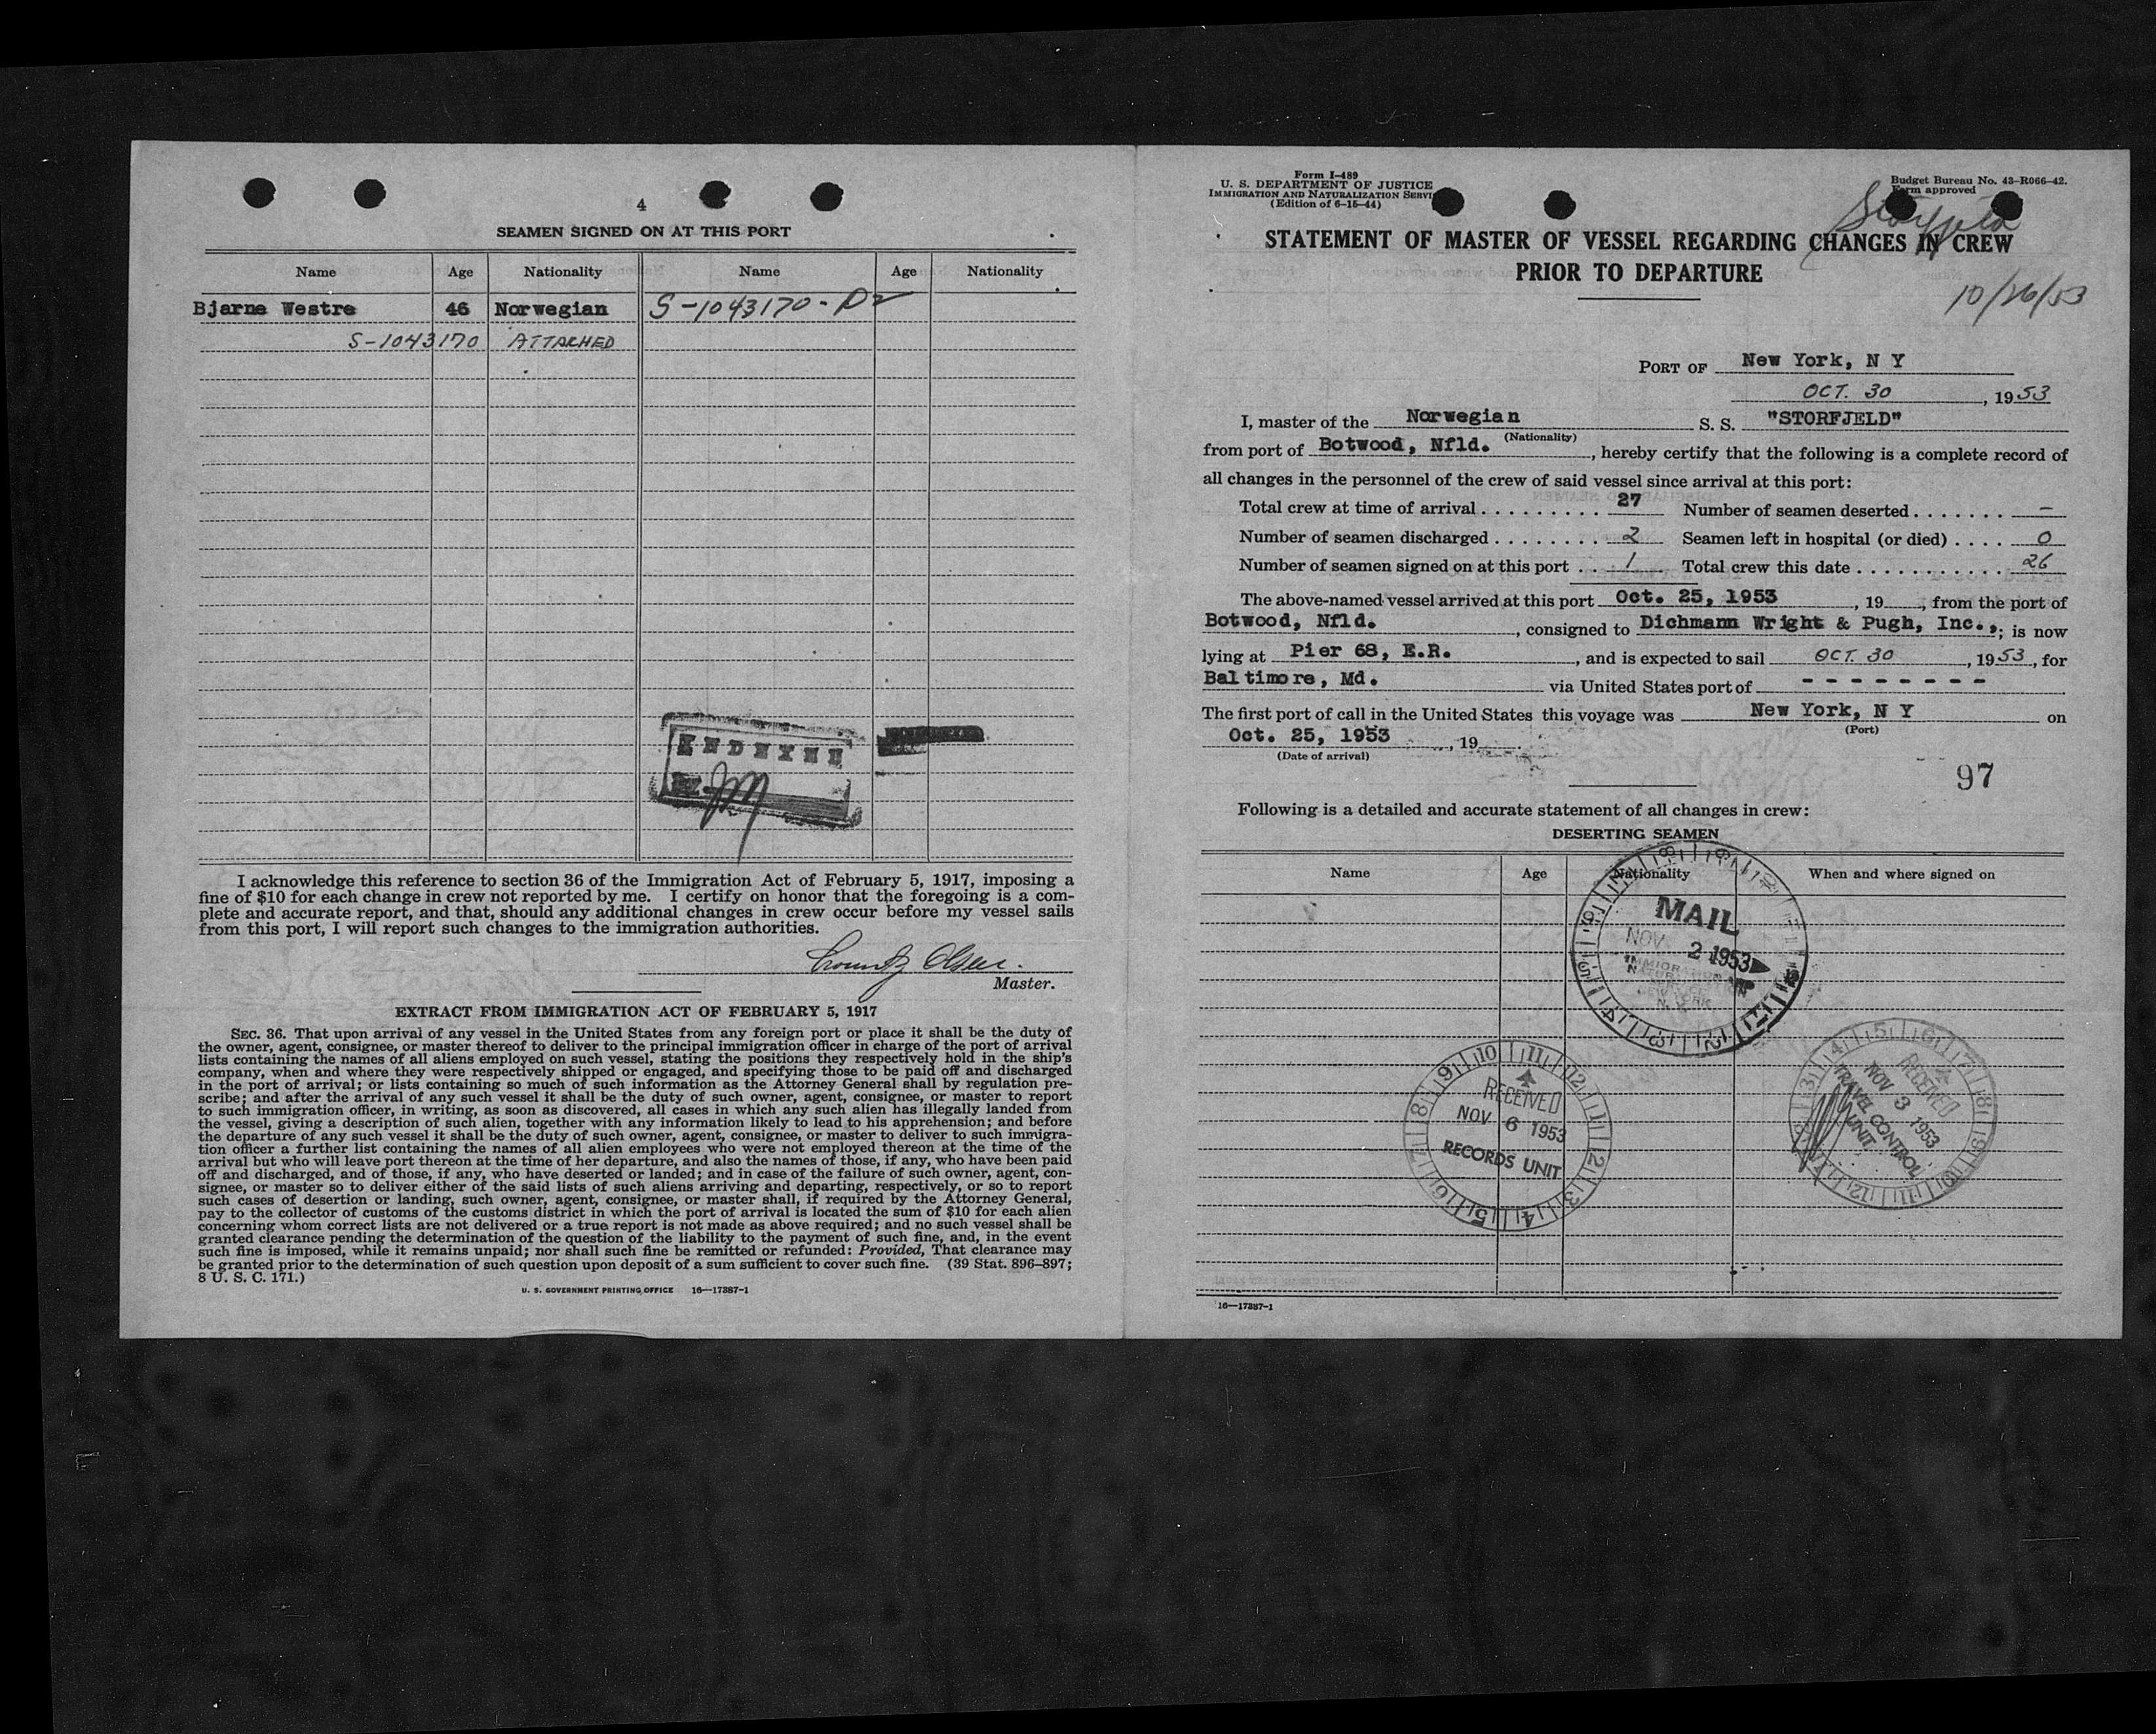 4
SEAMEN SIGNED ON AT THIS PORT
Name Age Nationality Name Age Nationality
Bjarne Westre 46 Norwegian S-1043170-D2
S-1043170 ATTACHED
I acknowledge this reference to section 36 of the Immigration Act of February 5, 1917, imposing a
fine of $10 for each change in crew not reported by me. I certify on honor that the foregoing is a com-
plete and accurate report, and that, should any additional changes in crew occur before my vessel sails
from this port, I will report such changes to the immigration authorities.
Olsen.
Master.
EXTRACT FROM IMMIGRATION ACT OF FEBRUARY 5, 1917
SEC. 36. That upon arrival of any vessel in the United States from any foreign port or place it shall be the duty of
the owner, agent, consignee, or master thereof to deliver to the principal immigration officer in charge of the port of arrival
lists containing the names of all aliens employed on such vessel, stating the positions they respectively hold in the ship's
company, when and where they were respectively shipped or engaged, and specifying those to be paid off and discharged
in the port of arrival; or lists containing so much of such information as the Attorney General shall by regulation pre-
scribe; and after the arrival of any such vessel it shall be the duty of such owner, agent, consignee, or master to report
to such immigration officer, in writing, as soon as discovered, all cases in which any such alien has illegally landed from
the vessel, giving a description of such alien, together with any information likely to lead to his apprehension; and before
the departure of any such vessel it shall be the duty of such owner, agent, consignee, or master to deliver to such immigra-
tion officer a further list containing the names of all alien employees who were not employed thereon at the time of the
arrival but who will leave port thereon at the time of her departure, and also the names of those, if any, who have been paid
off and discharged, and of those, if any, who have deserted or landed; and in case of the failure of such owner, agent, con-
signee, or master so to deliver either of the said lists of such aliens arriving and departing, respectively, or so to report
such cases of desertion or landing, such owner, agent, consignee, or master shall, if required by the Attorney General,
pay to the collector of customs of the customs district in which the port of arrival is located the sum of $10 for each alien
concerning whom correct lists are not delivered or a true report is not made as above required; and no such vessel shall be
granted clearance pending the determination of the question of the liability to the payment of such fine, and, in the event
such fine is imposed, while it remains unpaid; nor shall such fine be remitted or refunded: Provided, That clearance may
be granted prior to the determination of such question upon deposit of a sum sufficient to cover such fine. (39 Stat. 896–897;
8 U. S. C. 171.)
U. S. GOVERNMENT PRINTING OFFICE 16—17387-1
Form I-489
U. S. DEPARTMENT OF JUSTICE
IMMIGRATION AND NATURALIZATION SERVI
(Edition of 6-15-44)
Budget Bureau No. 43-R066-42.
Form approved
Storfjeld
STATEMENT OF MASTER OF VESSEL REGARDING CHANGES IN CREW
PRIOR TO DEPARTURE
10/26/53
PORT OF New York, N Y
OCT. 30, 1953
I, master of the Norwegian S. S. "STORFJELD"
(Nationality)
from port of Botwood, Nfld., hereby certify that the following is a complete record of
all changes in the personnel of the crew of said vessel since arrival at this port:
Total crew at time of arrival . . . . . . . . . 27 Number of seamen deserted . . . . . . . –
Number of seamen discharged . . . . . . . . 2 Seamen left in hospital (or died) . . . . 0
Number of seamen signed on at this port . . 1 Total crew this date . . . . . . . . . . . . 26
The above-named vessel arrived at this port Oct. 25, 1953, 19, from the port of
Botwood, Nfld., consigned to Dichmann Wright & Pugh, Inc.,; is now
lying at Pier 68, E.R., and is expected to sail OCT. 30, 1953, for
Baltimore, Md. via United States port of - - - - - - - -
The first port of call in the United States this voyage was New York, N Y on
(Port)
Oct. 25, 1953, 19
(Date of arrival)
97
Following is a detailed and accurate statement of all changes in crew:
DESERTING SEAMEN
Name Age Nationality When and where signed on
MAIL
NOV 2 1953
RECEIVED
NOV 6 1953
RECORDS UNIT
RECEIVED
NOV 3 1953
TRAVEL CONTROL
UNIT
16—17387-1